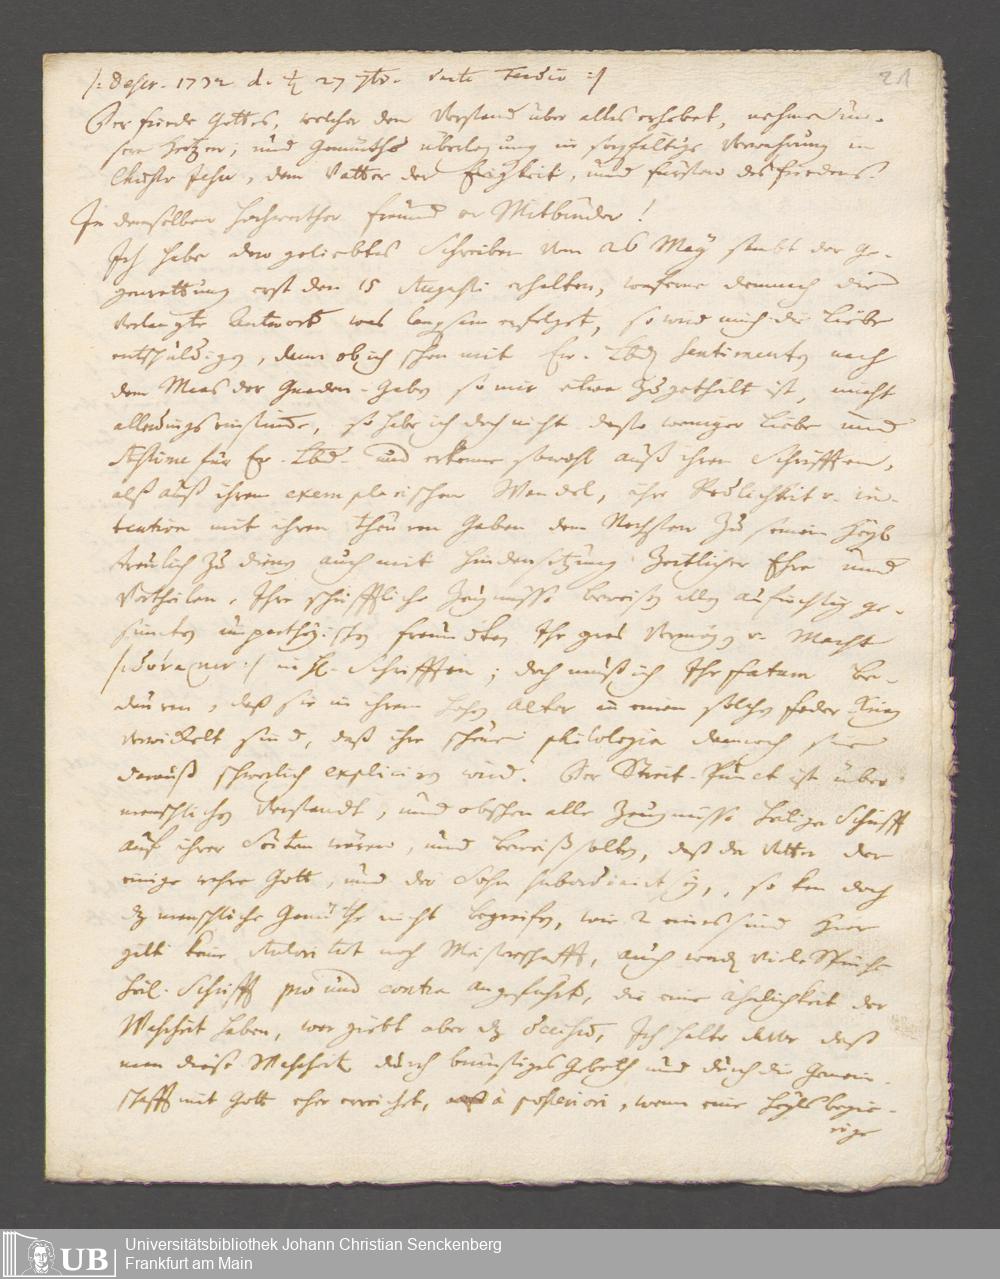 /: Descr. 1732 d. 27 7br. :/
21
Der friede Gottes, welcher den Verstand über alles erhebet, nehme un-
sere Hertzen, und Gemüths überlegung in sorgfältige Verwahrung in
Christo Jesu, dem Vatter der Ewigkeit, und fürsten des friedens.
In demselben Hochwerther freund er Mitbruder!
Ich habe dero geliebtes Schreiben vom 26 May sambt der ge-
erst den 15 Augusti erhalten, demnach die
verlangte Antwort was langsam erfolget, so wird mich die Liebe
entschuldigen, dann ob ich schon mit Ew. Lbd. Sentimenten nach
dem Maas der Gnaden-Gaben so mir etwa zugetheilt ist, nicht
allerdings einstimme, so habe ich doch nicht desto weniger Liebe und
Estime für Ew. Lbd. und erkenne sowohl auß ihren Schrifften,
alß auß ihrem exemplarischen Wandel, ihre Redlichkeit u. in-
tention mit ihren theuren Gaben dem Nechsten zu seinem Heyl
treulich zu dienen auch mit hindensetzung Zeitlicher Ehre und
Vortheilen, Ihre schrifftliche Zeugnisse beweisen allen aufrichtig ge-
sinneten unparthyischen freunden, Ihr gros Vermögen u. Macht
in hl. Schrifften; doch muß ich Ihr fatum be-
dauren, daß sie in ihrem hohen Alter in einen solchen feder-Krieg
verwickelt sind, daß ihre schöne philologia dennoch sie
darauß schwerlich expliciren wird. Der Streit-Punct ist über
menschlichen Verstandt, und obschon alle Zeugnisse heiliger Schrifft
auf ihrer Seiten wären, und beweisen solten, daß der Vatter der
einige wahre Gott, und der Sohn subordinirt sey, so kan doch
dz menschliche Gemüthe nicht begreifen, wie 2 eines sind hier
gilt keine Autoritet noch Meisterschafft, auch werden viele Sprüche
heil. Schrifft pro und contra angeführt, die eine ähnlichkeit der
Wahrheit haben, wer giebt aber dz decisum, Ich halte davor daß
man diese Wahrheit durch brünstiges Gebeth und durch die Gemein-
schafft mit Gott eher erreichet, à posteriori, wenn eine heylsbegie-
rige
Universitätsbibliothek Johann Christian Senckenberg
Frankfurt am Main
UB